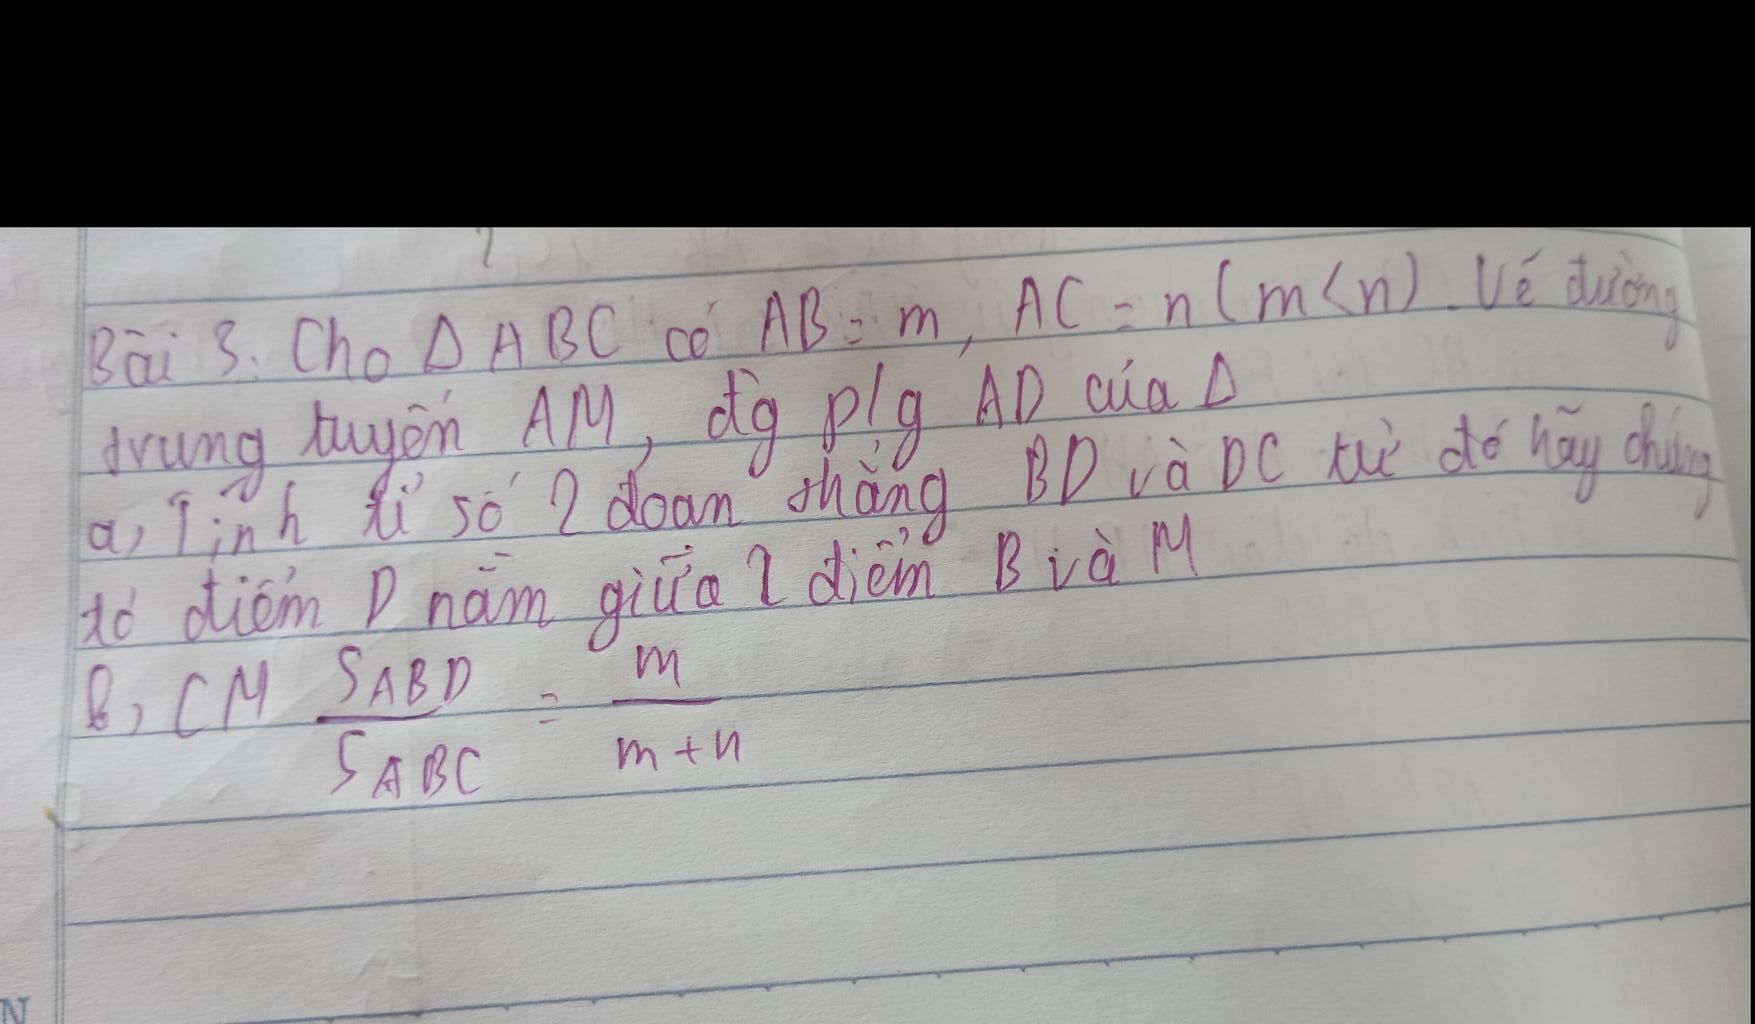 Bài 3. Cho Δ ABC có AB = m, AC = n (m<n). Vẽ đường
trung tuyến AM, đg p/g AD của Δ
a, Tính tỉ số 2 đoạn thẳng BD và DC từ đó hãy chứng
tỏ điểm D nằm giữa 2 điểm B và M
b, CM S_ABD / S_ABC = m / m+n
N